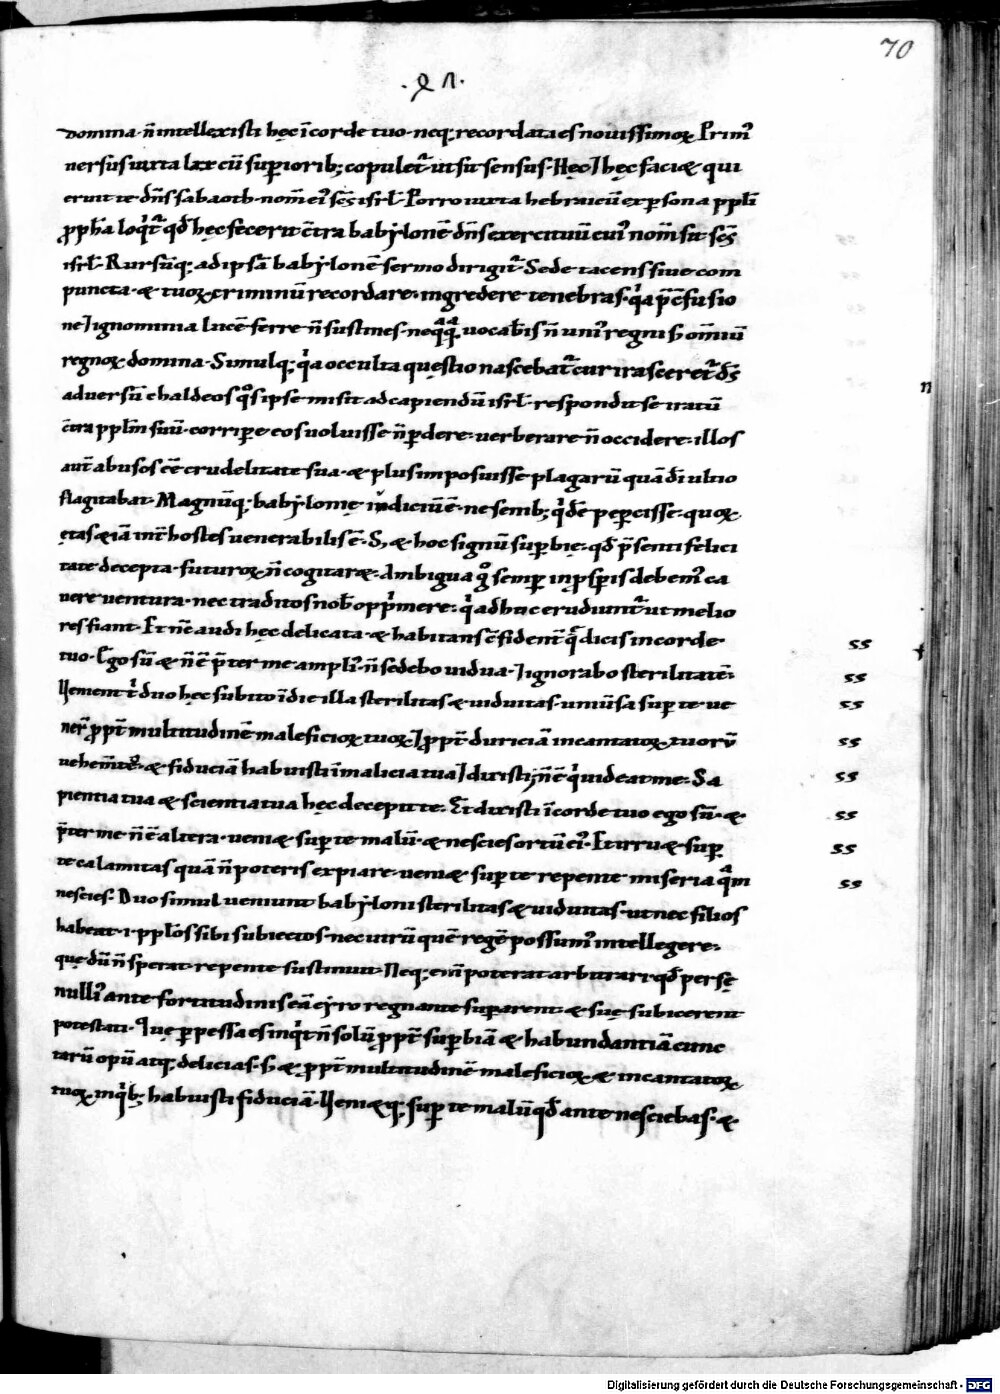 70
domina· n̄ intellexisti hęc ī corde tuo· neq; recordata es novissimoꝝ Prim᾽
versus iuxta lxx cū supiorib; copulet᾽· ut sit sensus· Hęc ⁊ hęc faci& qui
eruit te· dn̄s sabaoth· nom̄ ei᾽ sc̄s isrl̄· Porro iuxta hebraicū ex persona ppl̄i
ꝓph̄a loqͥt᾽ qđ hęc fecerit c̄tra babylonē dn̄s exercituū cui᾽ nom̄ sit sc̄s
isrl̄· Rursūq; ad ipsā babylonē sermo dirigit᾽· Sede tacens sive com
puncta· & tuoꝝ criminū recordare· ingredere tenebras· qͥa p̄ c̄fusio
ne ⁊ ignominia lucē ferre n̄ sustines· neqͣqͣ vocab̄is n̄ uni᾽ regni s; omiū
regnoꝝ domina· Simulq; qͥa occulta quęstio nascebat᾽ cur irasceret᾽ dn̄s
adversū chaldeos qͦs ipse misit ad capiendū isrl̄· respondit se iratū
c̄tra ppl̄m suū· corripere eos voluisse n̄ pdere· verberare n̄ occidere· illos
aut̄ abusos eē crudelitate sua· & plus imposuisse plagarū quā dī ultio
flagitabat· Magnūq; babylonię indiciū ē· ne senib; qͥdē pepcisse· quoꝝ
ętas &iā int̄ hostes venerabilis ē· S; & hoc signū supbię· qđ p̄senti felici
tate decepta· futuroꝝ n̄ cogitar&· Ambigua gͦ semp in ꝓspis debem᾽ ca
vere ventura· nec traditos nob̄ opp̄mere· qͥ adhuc erudiunt᾽ ut melio
res fiant· Et nc̄ audi hęc delicata· & habitans c̄fident̄ qͣ dicis in corde
tuo· Ego sū & n̄ ē p̄ter me ampli᾽· n̄ sedebo vidua· ⁊ ignorabo sterilitatē·
Venient t᾽ duo hęc subito ī die illa sterilitas & viduitas· univsa sup te ve
ner̄ ꝓpt̄ multitudinē maleficioꝝ tuoꝝ ⁊ ꝓpt̄ duriciā incantatoꝝ tuorū
vehem̄ter· & fiduciā habuisti ī malicia tua ⁊ dixisti n̄ ē qͥ videat me· Sa
pientia tua & scientia tua hęc decepit te· Et dixisti ī corde tuo ego sū· &
p̄ter me n̄ ē altera· veni& sup te malū· & nescies ortū ei᾽· Et irru& sup
te calamitas quā n̄ poteris expiare· veni& sup te repente miseria qͣm
nescies· Duo simul veniunt babyloni sterilitas & viduitas· ut nec filios
habeat· i· ppl̄os sibi subiectos· nec virū quē regē possum᾽ intellegere·
quę dū n̄ sperat· repente sustinuit· Neq; eni poterat arbitrari qđ persę
nulli᾽ ante fortitudinis eā cyro regnante suparent· & suę subicerent
potestati· Quę ppessa es inqͥt n̄ solū ꝓpt̄ supbiā & habundantiā cunc
tarū opū atq; delicias· s; & ꝓpt̄ multitudinē maleficioꝝ & incantatoꝝ
tuoꝝ· inqͥb; habuisti fiduciā· Veni&q; sup te malū qđ ante nesciebas· &
Digitalisierung gefördert durch die Deutsche Forschungsgemeinschaft - DFG